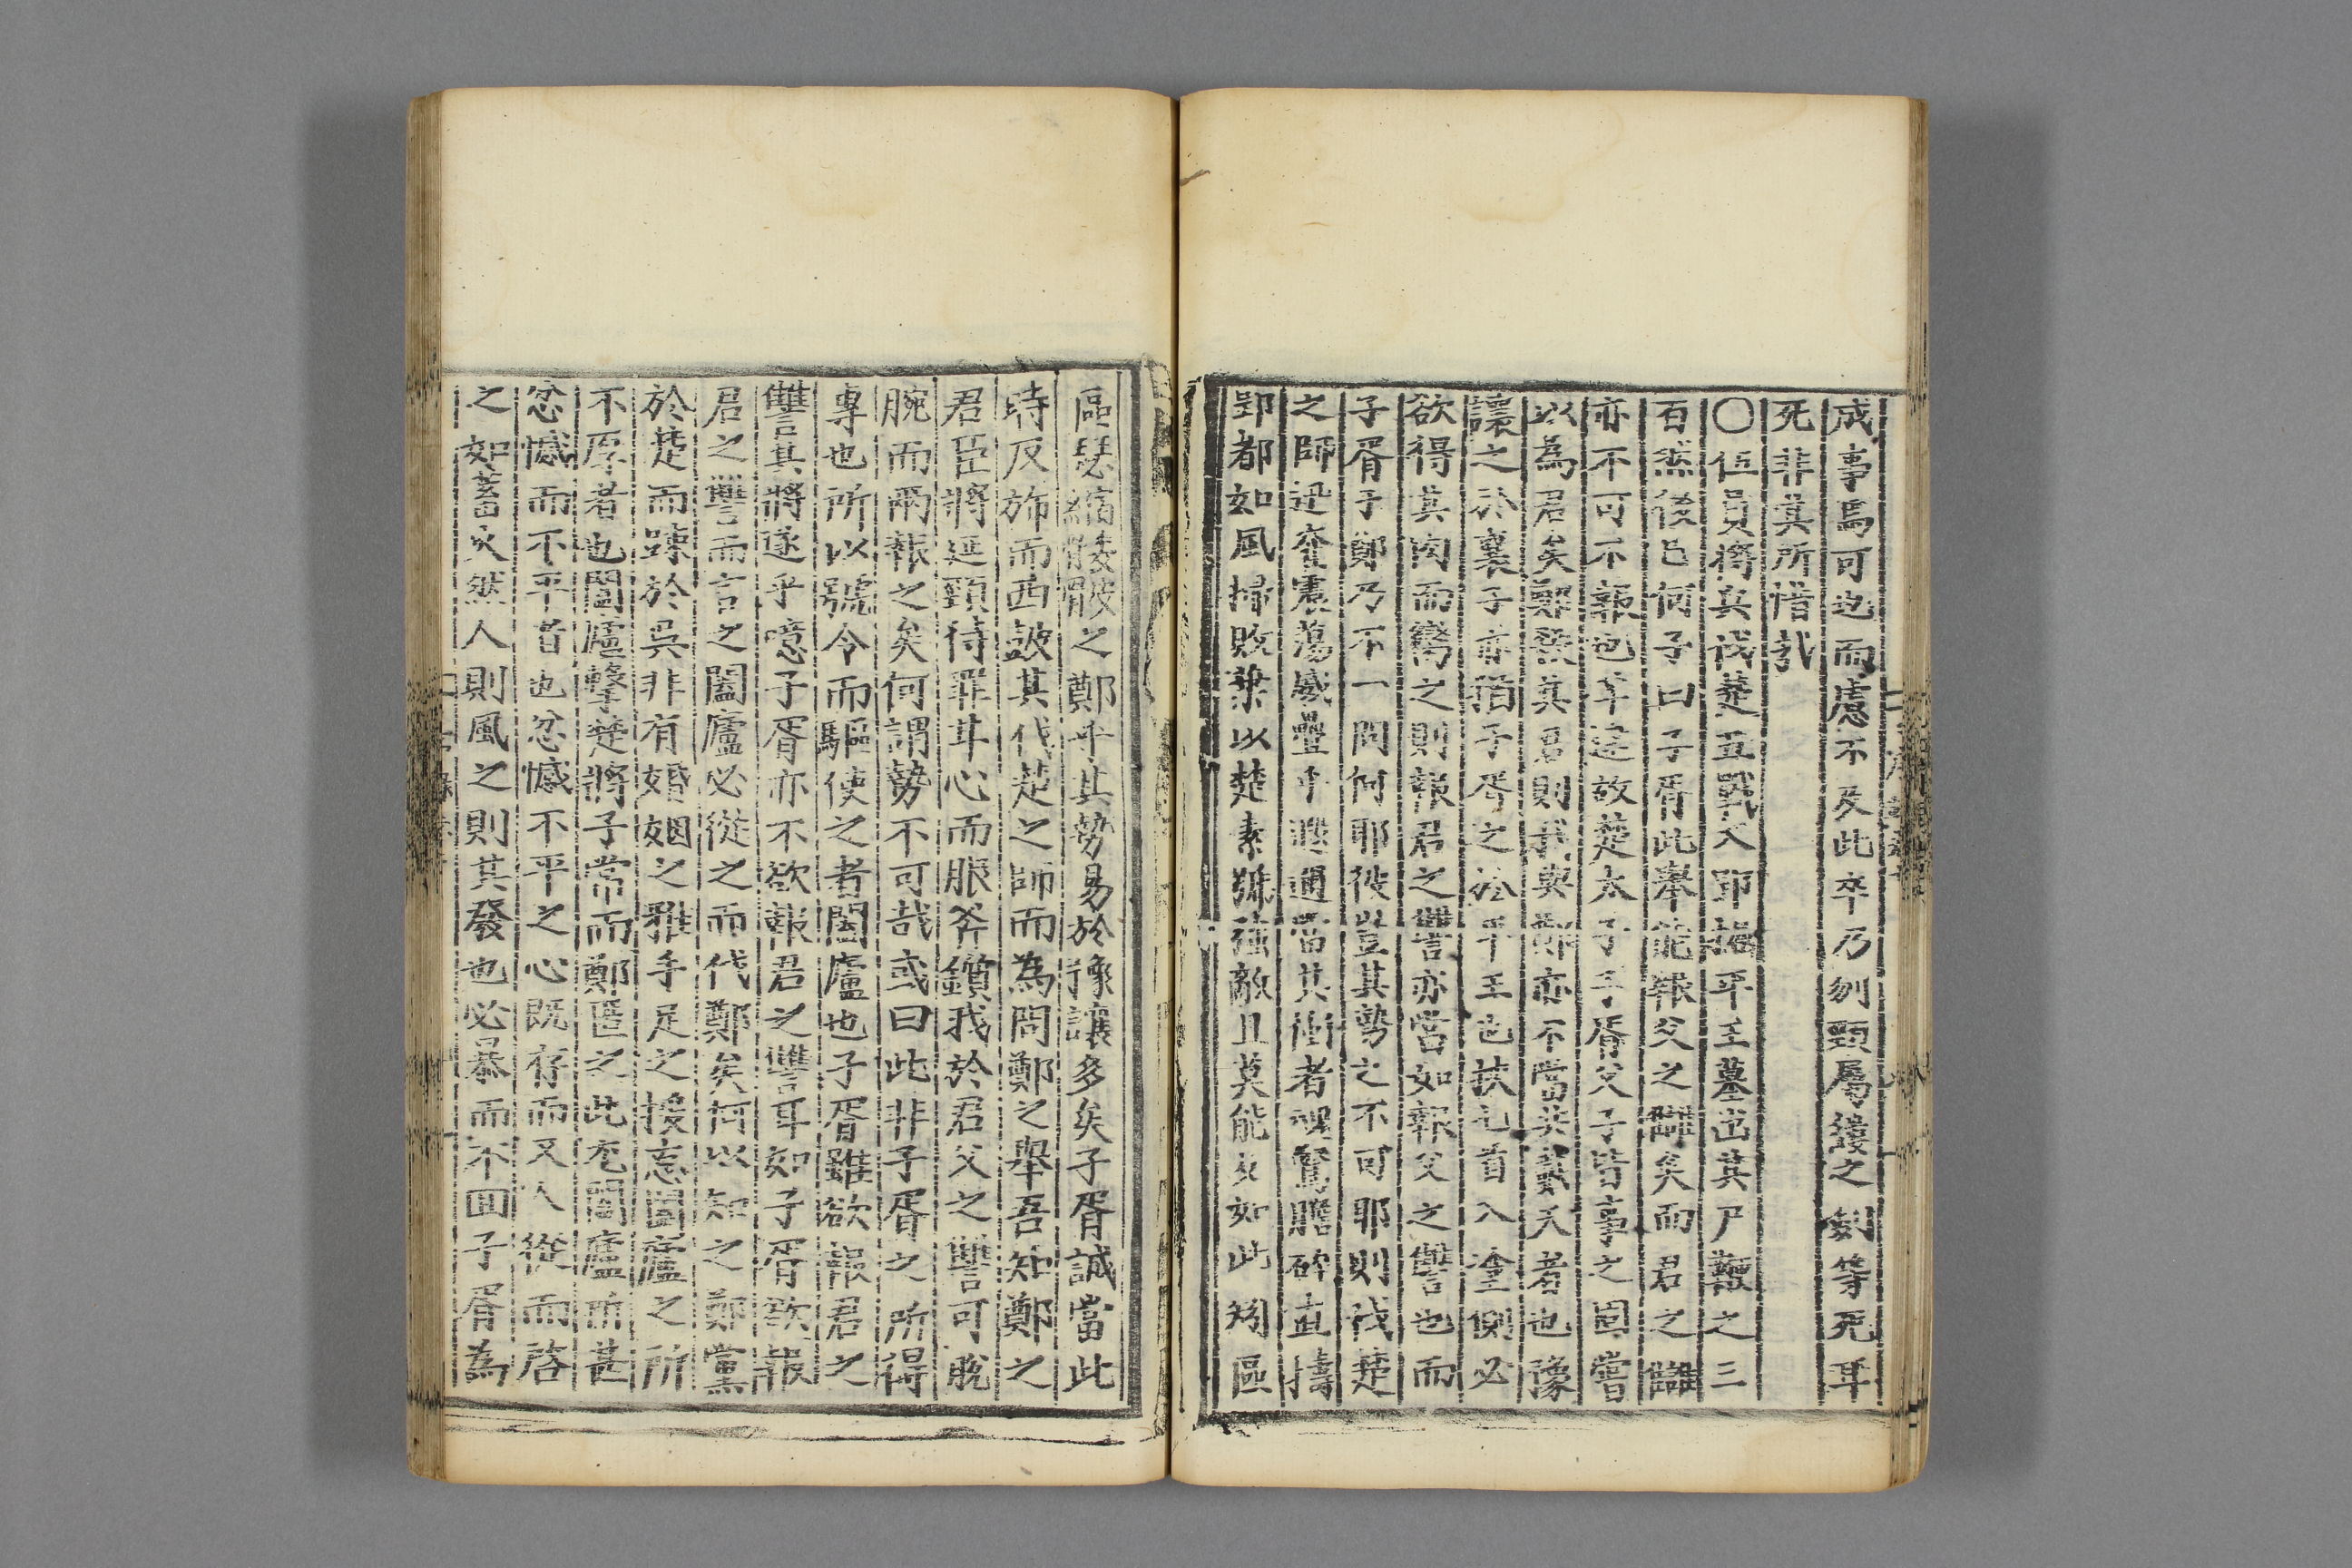 成事焉可也而慮不及此卒乃刎頸屬鏤之劍等死耳
死非眞所惜哉
〇伍員將兵伐楚五戰入郢掘平王墓出其尸鞭之三
百然後已何子曰子胥此舉能報父之讎矣而君之讎
亦不可不報也羊定故楚太子子胥父子皆事之固嘗
以為君矣鄭殺其君則我與鄭亦不當共戴天者也豫
讓之於襄子亦猶子胥之於平王也扶匕首入塗側必
欲得其肉而臠之則報君之讐亦當如報父之讐也而
子胥于鄭乃不一問何耶彼豈其勢之不可耶則伐楚
之師迅奮震蕩威疊千里當其衝者魂驚膽碎直擣
郢都如風掃敗葉以楚素號強敵且莫能支如此矧區
區瑟縮骫骳之鄭乎其勢易於豫讓多矣子胥誠當此
時反斾而西鼓其伐楚之師而為問鄭之舉吾知鄭之
君臣將延頸待罪甘心而服斧鑕我於君父之讐可脫
腕而兩報之矣何謂勢不可哉或曰此非子胥之所得
專也所以號令而驅使之者闔廬也子胥雖欲報君之
讐其將遂乎噫子胥亦不欲報君之讐耳如子胥欲報
君之讐而言之闔廬必從之而伐鄭矣何以知之鄭黨
於楚而踈於吳非有婚姻之雅手足之援忘闔廬之所
不原者也闔廬擊楚將子常而鄭匿之此尤闔廬所甚
忿憾而不平者也忿憾不平之心既存而又人從而啓
之如蓄火然人則風之則其發也必暴而不回子胥為